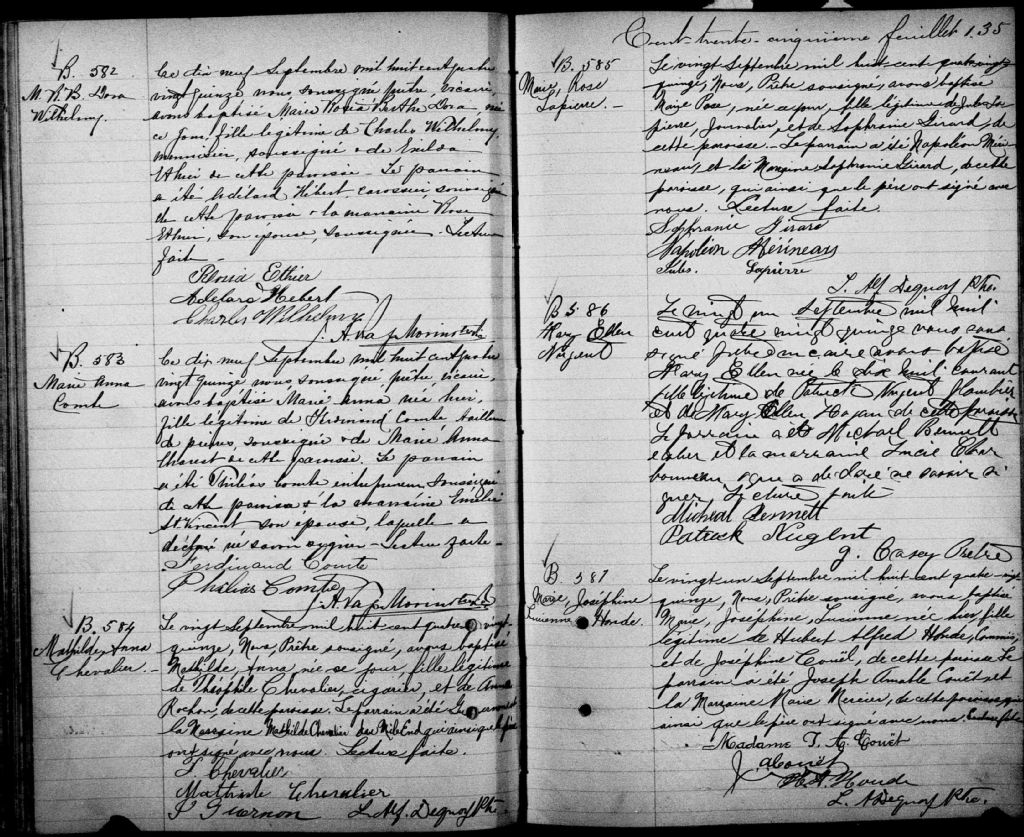 B. 582
M. R. B. Dora
Wilhelmy.
Ce dix neuf Septembre mil huit cent quatre
vingt quinze nous soussigné prêtre, vicaire,
avons baptisé Marie Rosia Berthe Dora, née
ce jour, fille légitime de Charles Wilhelmy,
menuisier, soussigné & de Exilda
Ethier de cette paroisse. Le parrain
a été Adélard Hébert, carossier, soussigné
de cette paroisse & la marraine Rose
Ethier, son épouse, soussignée. Lecture
faite.
Ethier
Adelard Hebert
Charles Wilhelmy
Morin
B. 583
Marie Anna
Comte
Ce dix neuf Septembre mil huit cent quatre
vingt quinze nous soussigné prêtre, vicaire,
avons baptisé Marie Anna née hier,
fille légitime de Ferdinand Comte tailleur
de pierres, soussigné & de Marie Anna
de cette paroisse. Le parrain
a été Philias Comte entrepreneur, soussigné
de cette paroisse & la marraine Emélie
St. Vincent son épouse, laquelle a
déclaré ne savoir signer. Lecture faite.
Ferdinand Comte
Philias Comte
Morin
B. 584
Mathilde, Anna
Chevalier.
Le vingt Septembre mil huit cent quatre vingt
quinze, Nous, Prêtre soussigné, avons baptisé
Mathilde, Anna, née ce jour, fille légitime
de Théophile Chevalier, cigarier, et de
Rochon, de cette paroisse. Le parrain a été
la Marraine Mathilde Chevalier du Mile End, qui ainsi que le père
ont signé avec nous. Lecture faite.
T. Chevalier
Mathilde Chevalier
Guernon L. Alf. Dequoy Ptre.
Cent-trente-cinquième feuillet 135
B. 585
Marie, Rose
Lapierre.
Le vingt Septembre mil huit cent quatre vingt
quinze, Nous, Prêtre soussigné, avons baptisé
Marie Rose, née ce jour, fille légitime de Jules La-
pierre, Journalier, et de Sophranie Girard, de
cette paroisse. Le parrain a été Napoléon Méri-
neau, et la Marraine Sophranie Girard, de cette
paroisse, qui ainsi que le père ont signé avec
nous. Lecture faite.
Sophranie Girard
Napoléon Mérineau
Jules Lapierre
L. Alf Dequoy Ptre.
B 586
Mary Ellen
Nugent
Le vingt un Septembre mil huit
cent quatre vingt quinze nous sous
signé prêtre vicaire avons baptisé
Mary Ellen née le dix huit courant
fille légitime de Patrick Nugent Plombier
et de Mary Ellen Hagan de cette paroisse
Le parrain a été Michael Bennett
et la marraine Lucie Char
bonneau qui a déclaré ne savoir si
gner. Lecture faite
Micheal Bennett
Patrick Nugent
J. Casey Prêtre
B. 587
Marie, Joséphine
Lucienne Houde.
Le vingt un Septembre mil huit cent quatre vingt
quinze, Nous, Prêtre soussigné, avons baptisé
Marie, Joséphine, Lucienne née hier, fille
légitime de Hubert Alfred Houde, Commis,
et de Joséphine Couët, de cette paroisse. Le
parrain a été Joseph Amable Couët et
la Marraine Marie Mercier, de cette paroisse, qui
ainsi que le père ont signé avec nous. Lecture faite.
Madame J. A. Couët
J A Couët
H. A. Houde
L. A Dequoy Ptre.